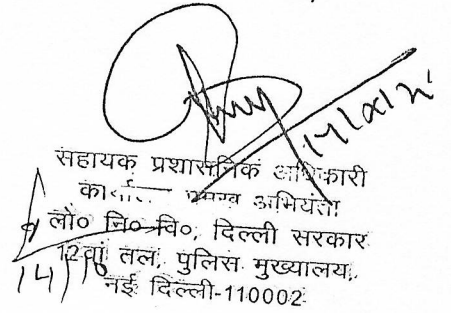 सहायक प्रशासनिक अधिकारी
प्रमुख अभियंता
लो० नि० वि०, दिल्ली सरकार
12वां तल, पुलिस मुख्यालय,
14/10
नई दिल्ली-110002